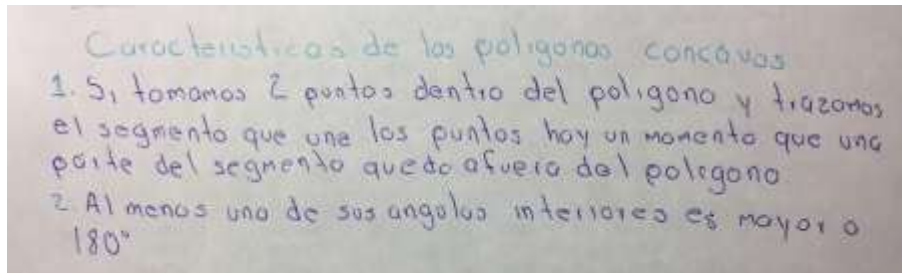 Caracteristicas de los poligonos concavos
1. Si tomamos 2 puntos dentro del poligono y trazamos
el segmento que une los puntos hay un momento que una
parte del segmento queda afuera del poligono
2. Al menos uno de sus angulos interiores es mayor a
180°